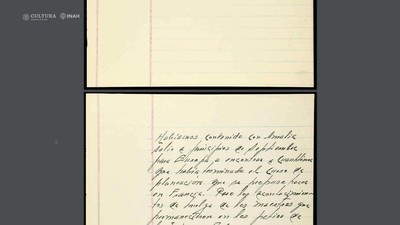 CULTURA
INAH
Habíamos convenido con Amalia
salir a principios de Septiembre
para Europa a encontrar a Cuauhtémoc
que había terminado el curso de
planeación que se propuso hacer
en Francia. Pero los acontecimien-
tos de huelga de los maestros que
permanecían en los patios de